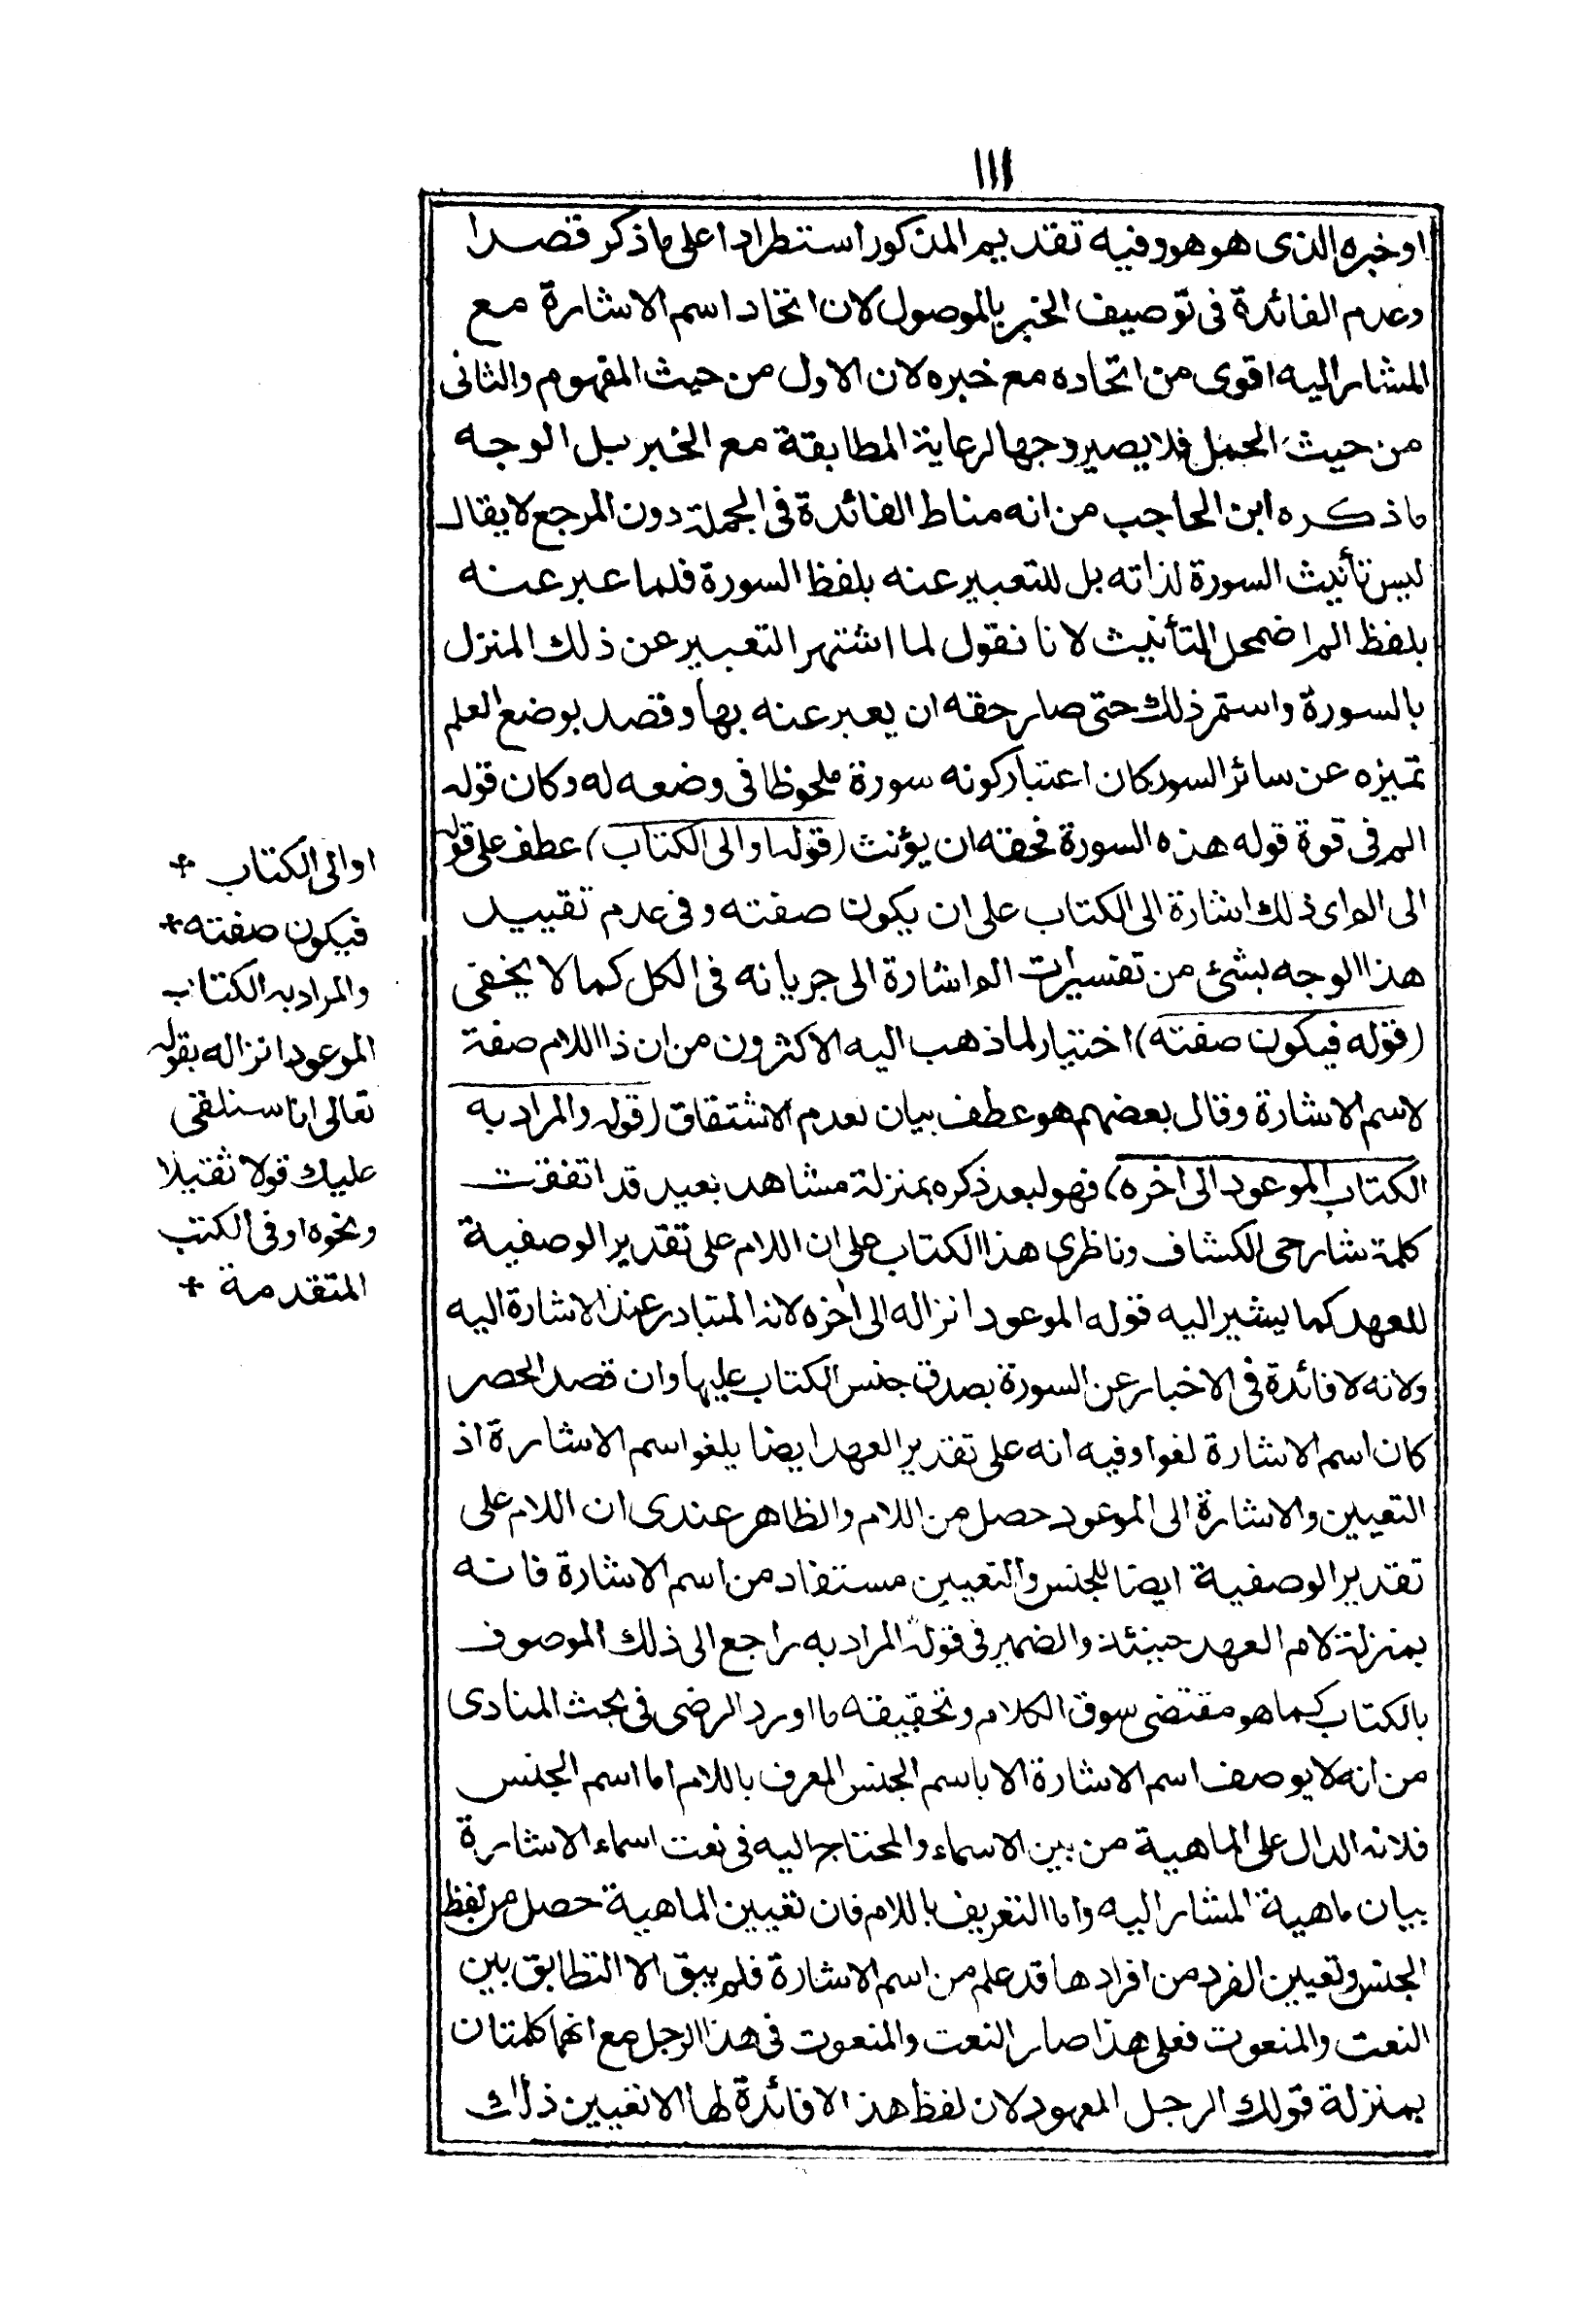 ١١١
اوخبره الذى هو هو وفيه تقديم المذكور استطرادا على ماذكر قصدا
وعدم الفائدة فى توصيف الخبر بالموصول لان اتحاد اسم الاشارة مع
المشار اليه اقوى من اتحاده مع خبره لان الاول من حيث المفهوم والثانى
من حيث الحمل فلا يصير وجها لرعاية المطابقة مع الخبر بل الوجه
ماذكره ابن الحاجب من انه مناط الفائدة فى الجملة دون المرجع لا يقال
ليس تأنيث السورة لذاته بل للتعبير عنه بلفظ السورة فلما عبر عنه
بلفظ الم اضمحل التأنيث لانا نقول لما اشتهر التعبير عن ذلك المنزل
بالسورة واستمر ذلك حتى صار حقه ان يعبر عنه بها وقصد بوضع العلم
تميزه عن سائر السور كان اعتبار كونه سورة ملحوظا فى وضعه له وكان قوله
الم فى قوة قوله هذه السورة فحقه ان يؤنث (قوله اوالى الكتاب) عطف على قوله
الى الم اى ذلك اشارة الى الكتاب على ان يكون صفته وفى عدم تقييد
هذا الوجه بشئ من تفسيرات الم اشارة الى جريانه فى الكل كما لا يخفى
(قوله فيكون صفته) اختيار لما ذهب اليه الاكثرون من ان ذا اللام صفة
لاسم الاشارة وقال بعضهم هو عطف بيان لعدم الاشتقاق (قوله والمراد به
الكتاب الموعود الى اخره) فهو لبعد ذكره بمنزلة مشاهد بعيد قد اتفقت
كلمة شارحى الكشاف وناظرى هذا الكتاب على ان اللام على تقدير الوصفية
للعهد كما يشير اليه قوله الموعود انزاله الى اخره لانه المتبادر عند الاشارة اليه
ولانه لا فائدة فى الاخبار عن السورة بصدق جنس الكتاب عليها وان قصد الحصر
كان اسم الاشارة لغوا وفيه انه على تقدير العهد ايضا يلغو اسم الاشارة اذ
التعيين والاشارة الى الموعود حصل من اللام والظاهر عندى ان اللام على
تقدير الوصفية ايضا للجنس والتعيين مستفاد من اسم الاشارة فانه
بمنزلة لام العهد حينئذ والضمير فى قوله المراد به راجع الى ذلك الموصوف
بالكتاب كما هو مقتضى سوق الكلام وتحقيقه ما اورد الرضى فى بحث المنادى
من انه لا يوصف اسم الاشارة الا باسم الجنس المعرف باللام اما اسم الجنس
فلانه الدال على الماهية من بين الاسماء والمحتاج اليه فى نعت اسماء الاشارة
بيان ماهية المشار اليه واما التعريف باللام فان تعيين الماهية حصل من لفظ
الجنس وتعيين الفرد من افرادها قد علم من اسم الاشارة فلم يبق الا التطابق بين
النعت والمنعوت فعلى هذا صار النعت والمنعوت فى هذا الرجل مع انهما كلمتان
بمنزلة قولك الرجل المعهود لان لفظ هذ الا فائدة لها الا تعيين ذلك
اوالى الكتاب +
فيكون صفته +
والمراد به الكتاب
الموعود انزاله بقوله
تعالى انا سنلقى
عليك قولا ثقيلا
ونحوه اوفى الكتب
المتقدمة +